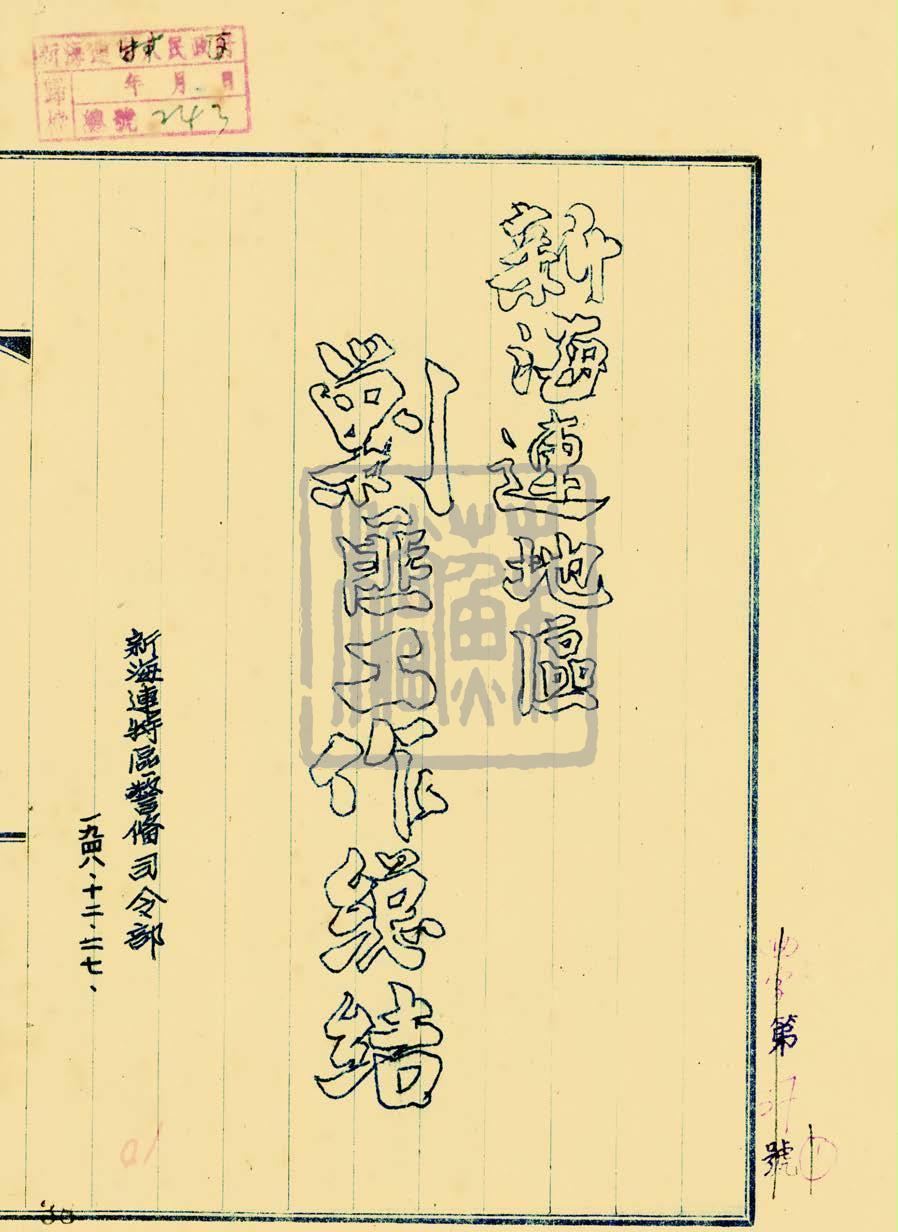 新海連
民政
歸檔
年 月 日
總號 243
新海連地區
剿匪工作總結
新海連特區警備司令部
一九四八、十二、二七、
第
號